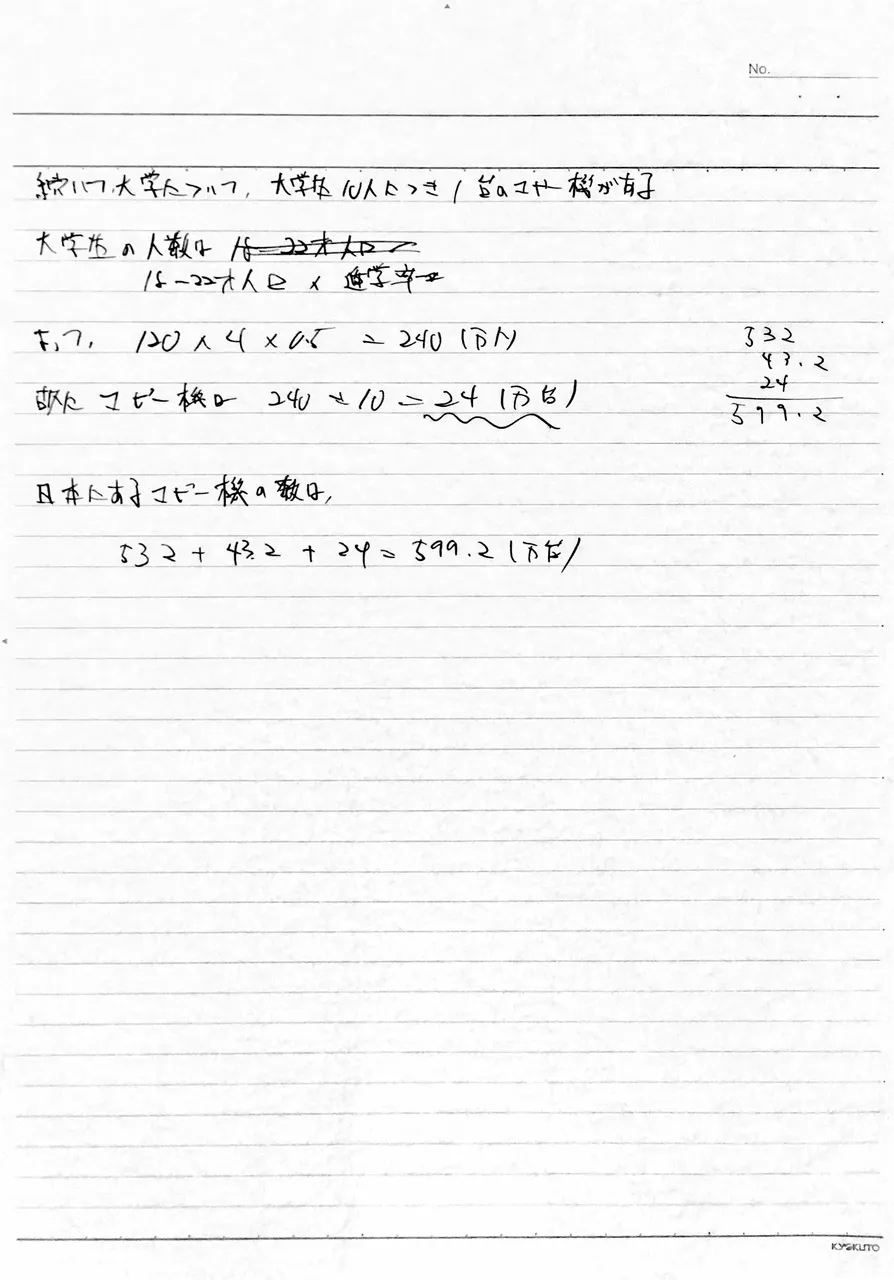 No.
続いて、大学について、大学生10人につき1台のコピー機が有る
大学生の人数は 18-22才人口
18-22才人口 × 進学率
よって、 120 × 4 × 0.5 = 240 (万人)
故に コピー機は 240 ÷ 10 = 24 (万台)
532
43.2
24
599.2
日本にあるコピー機の数は、
532 + 43.2 + 24 = 599.2 (万台)
KYOKUTO